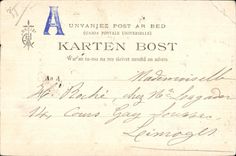 A
UNVANIEZ POST AR BED
(UNION POSTALE UNIVERSELLE)
KARTEN BOST
War an tu-ma na rer skrivet nemed an adres
Mademoiselle
M. Roché, chez Mr
14, Cours Gay Lussac
Limoges